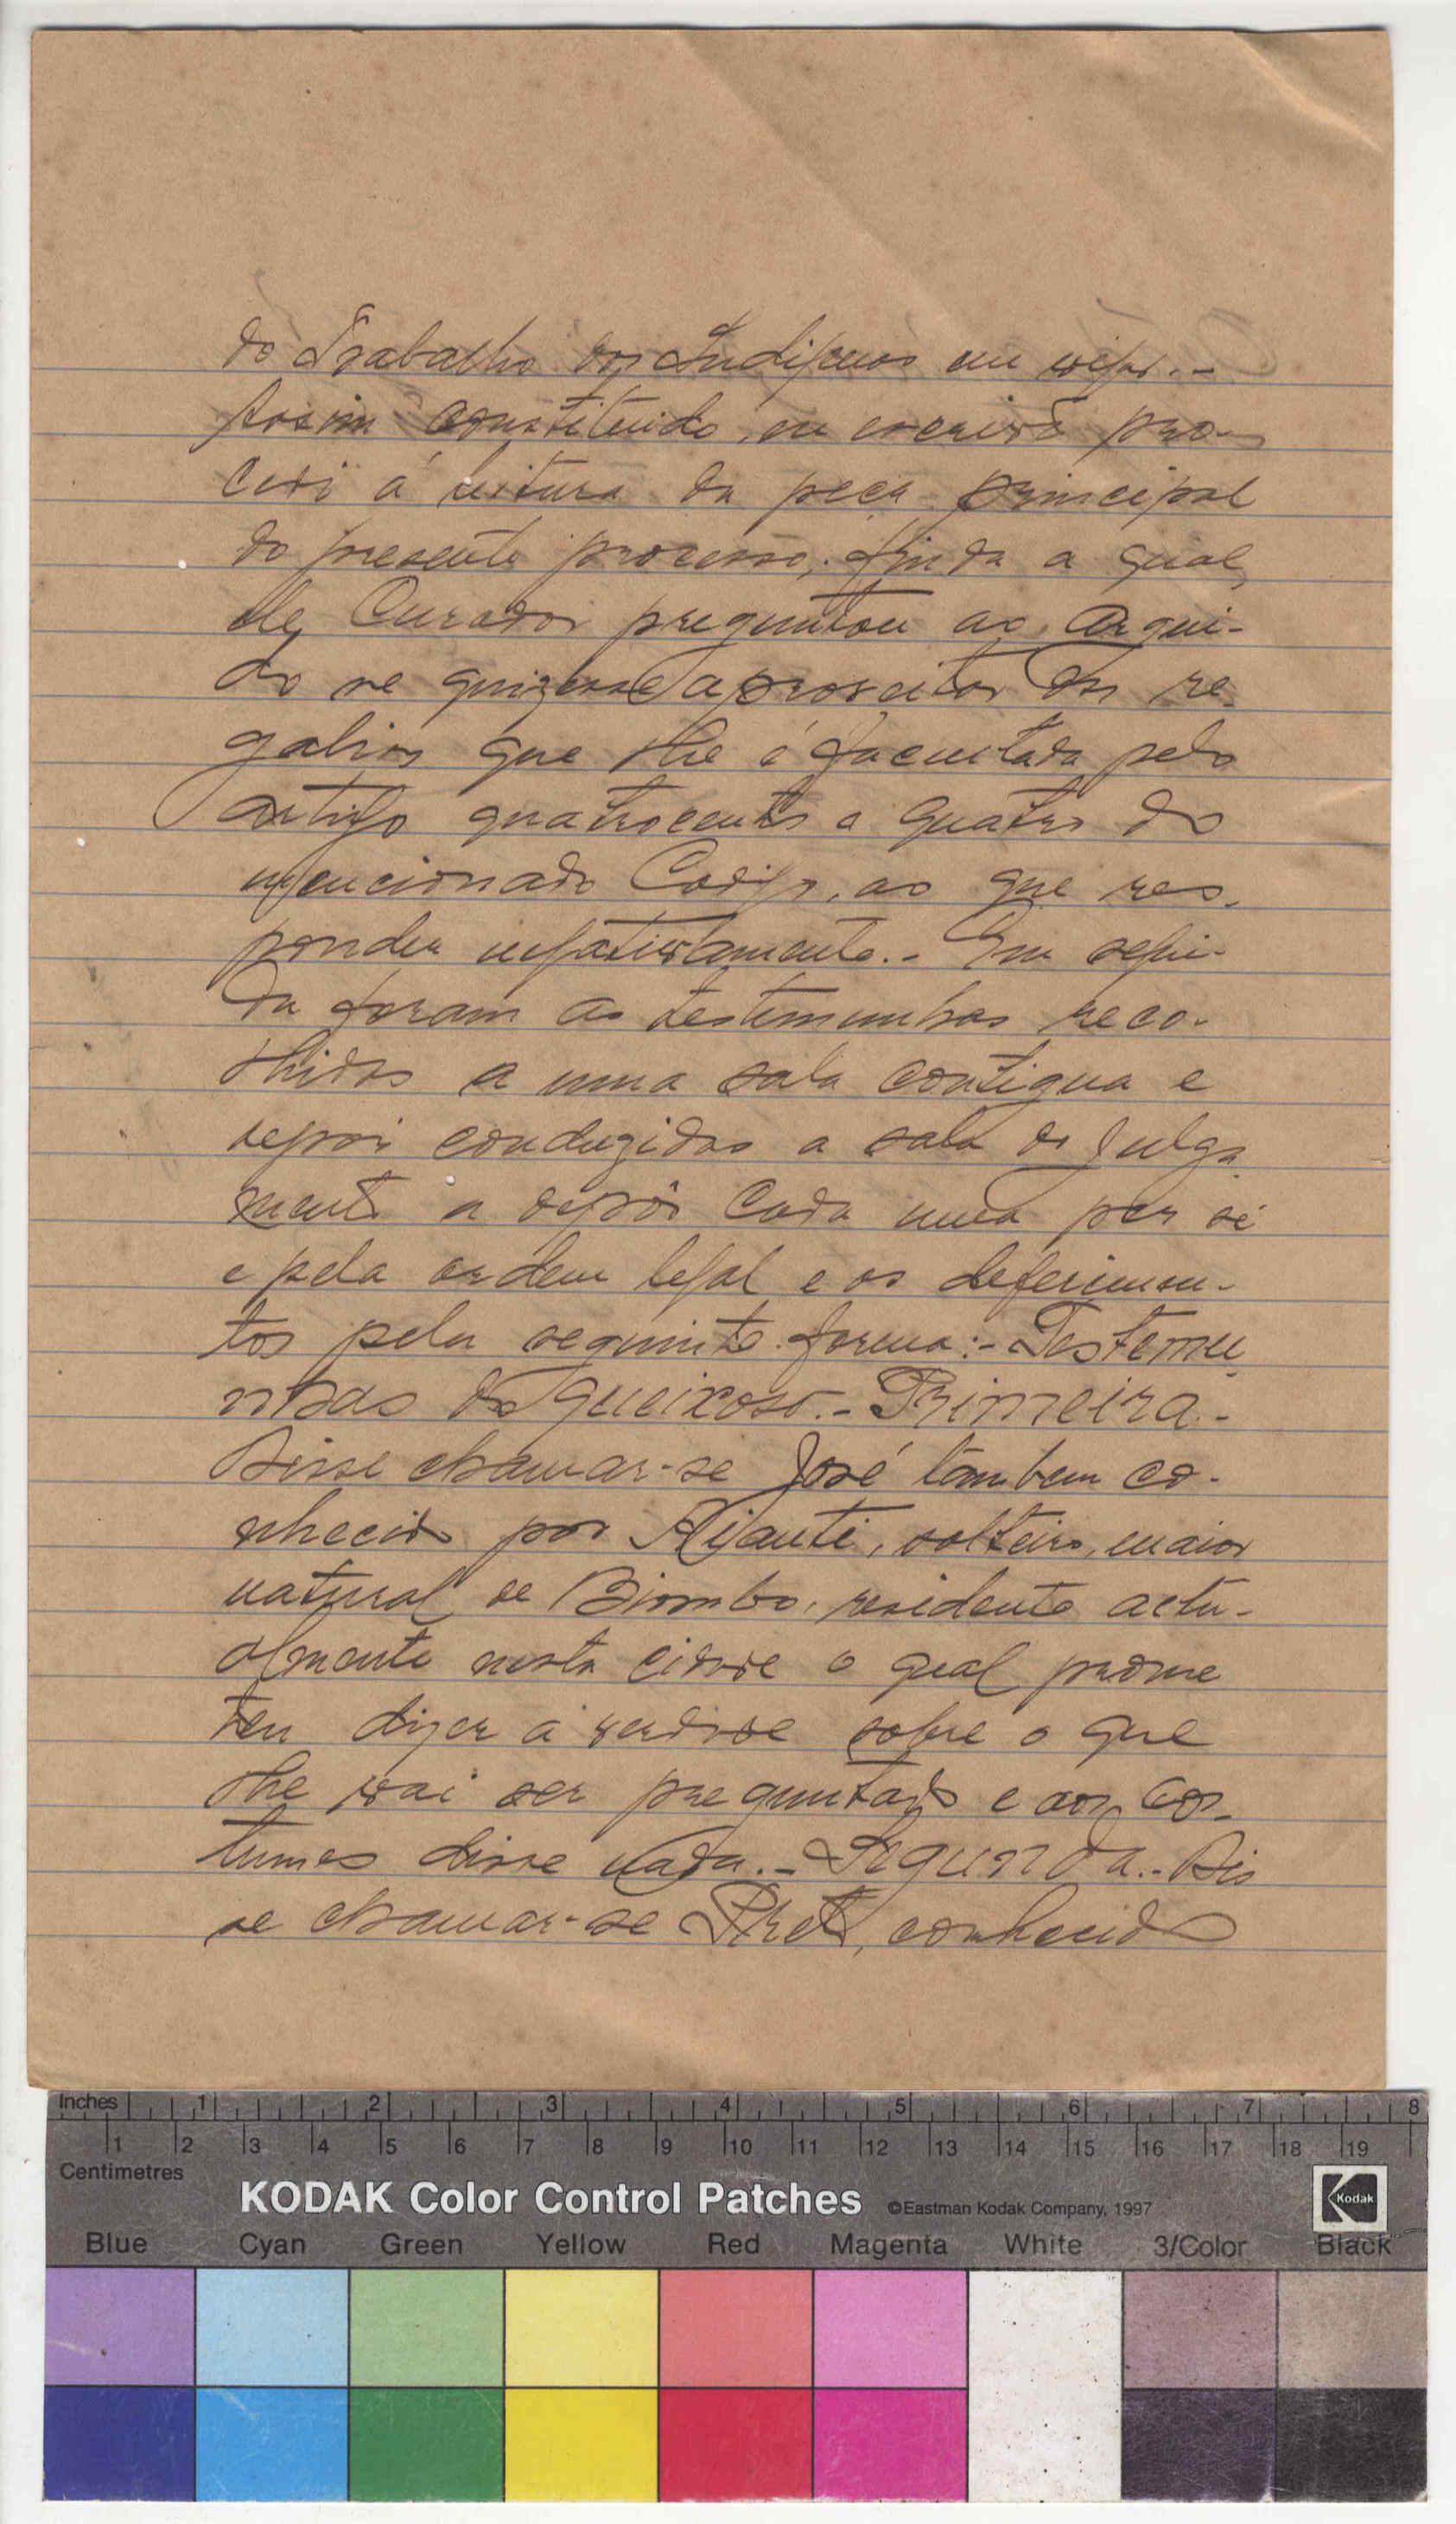 do Trabalho dos Indigenas em vigor.-
Assim constituido, eu escrivão pro-
cedi á leitura da peça principal
do presente processo, finda a qual,
ele Curador preguntou ao argui-
do se quizesse aproveitar das re
galias que lhe é facultada pelo
artigo quatrocentos e quatro do
mencionado Codigo, ao que res-
pondeu negativamente.- Em segui-
da foram as testemunhas reco-
lhidas a uma sala contigua e
depois conduzidas a sala de julga
mento a depôr cada uma per sé
e pela ordem legal e os deferimen-
tos pela seguinte forma:- Testemu
nhas do queixoso.- Primeira.-
Disse chamar-se José tambem co-
nhecido por solteiro, maior
natural de Biombo, residente actu-
almente nesta cidade o qual prome
teu dizer a verdade sobre o que
lhe vai ser preguntado e aos cos-
tumes disse nada.- Segunda.- Dis
se chamar-se conhecido
Inches 1 2 3 4 5 6 7 8
1 2 3 4 5 6 7 8 9 10 11 12 13 14 15 16 17 18 19
Centimetres
KODAK Color Control Patches ©Eastman Kodak Company, 1997 Kodak
Blue Cyan Green Yellow Red Magenta White 3/Color Black